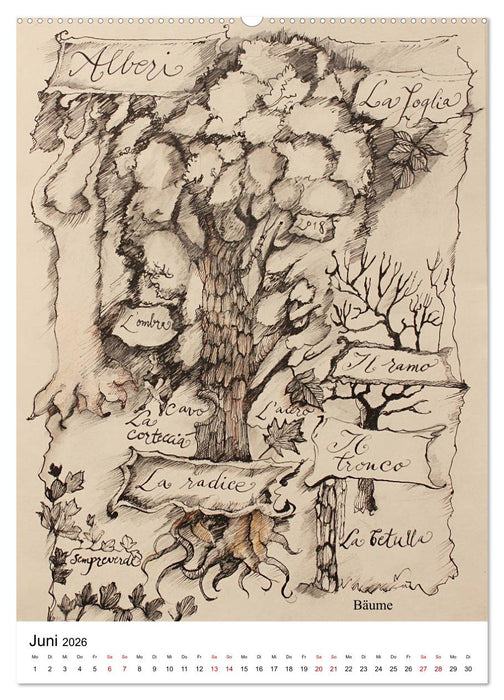 Alberi
La foglia
2018
L'ombra
Il ramo
Cavo
L'acero
La
corteccia
Il
tronco
La radice
La betulla
Sempreverde
Bäume
Juni 2026
Mo Di Mi Do Fr Sa So Mo Di Mi Do Fr Sa So Mo Di Mi Do Fr Sa So Mo Di Mi Do Fr Sa So Mo Di
1 2 3 4 5 6 7 8 9 10 11 12 13 14 15 16 17 18 19 20 21 22 23 24 25 26 27 28 29 30